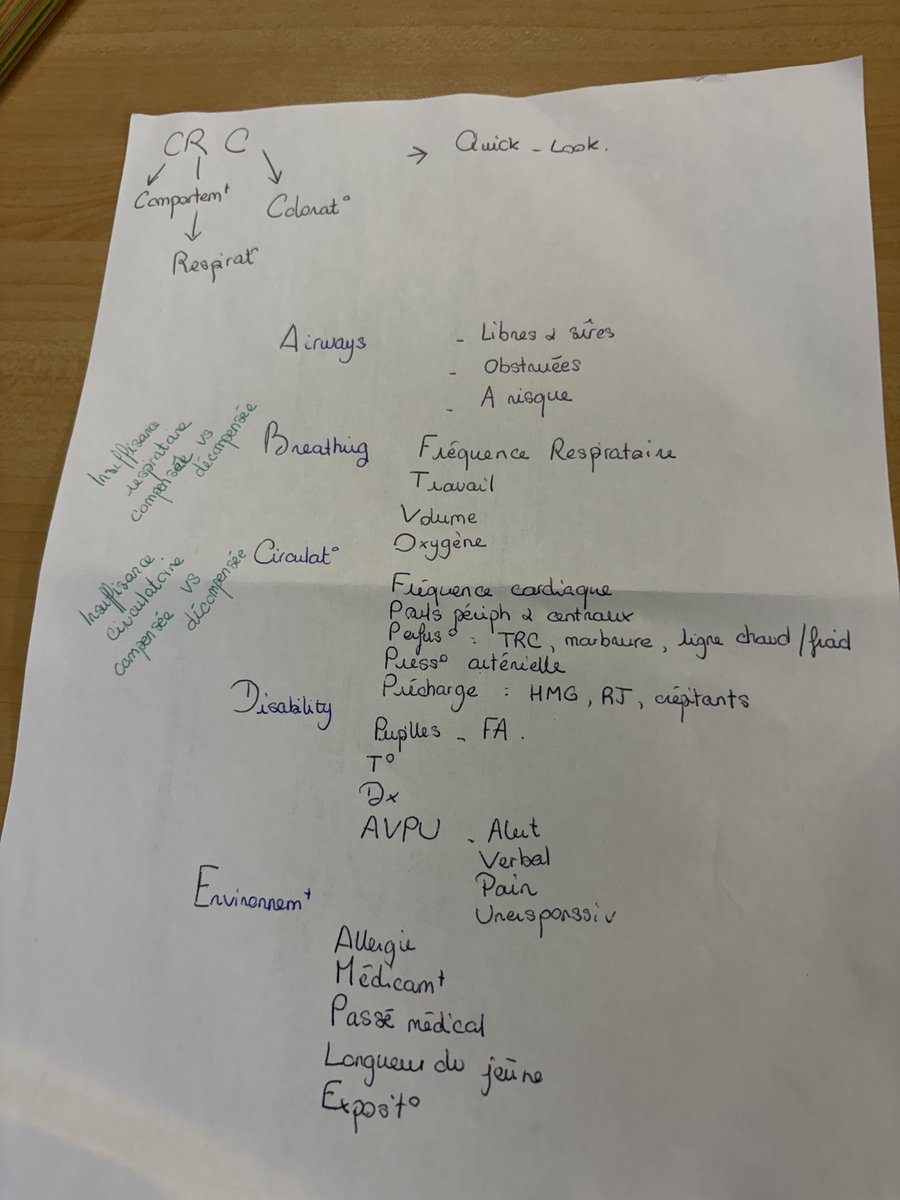 CR C → Quick - Look.
Comportem^t Colorat°
Respirat°
Airways - Libres & sûres
- Obstruées
- A risque
Insuffisance
respiratoire
compensée vs
décompensée
Breathing Fréquence Respiratoire
Travail
Volume
Oxygène
Insuffisance
circulatoire
compensée vs
décompensée
Circulat°
Fréquence cardiaque
Pouls périph & centraux
Perfus° : TRC, marbrure, ligne chaud/froid
Press° artérielle
Précharge : HMG, RJ, crépitants
Disability
Pupilles - FA.
T°
Dx
AVPU - Alert
Verbal
Pain
Unresponssiv
Environnem^t
Allergie
Médicam^t
Passé médical
Longueur du jeûne
Exposit°